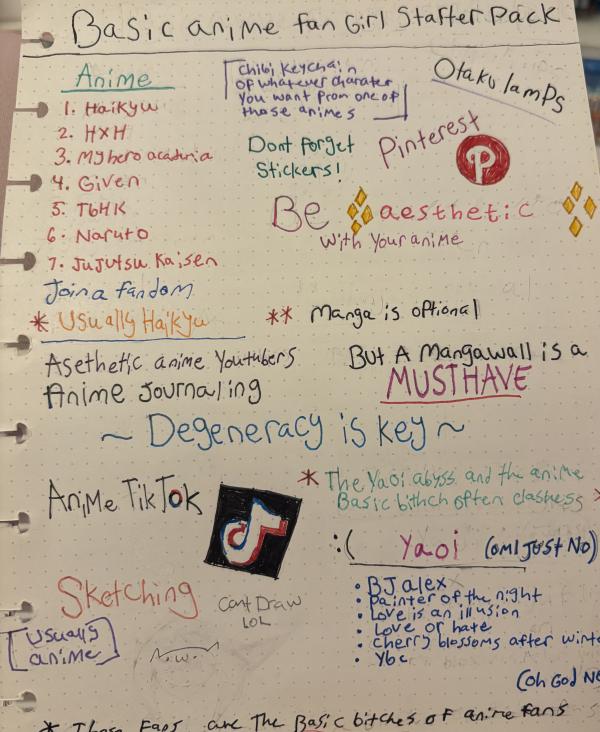 Basic anime fan Girl Starter Pack
Anime
1. Haikyu
2. HXH
3. My hero acadimia
4. Given
5. TBHK
6. Naruto
7. Jujutsu Kaisen
Join a fandom
* Usually Haikyu
Chibi Keychain
of whatever charater
you want from one of
those animes
Otaku lamps
Dont forget
Stickers!
Pinterest
Be aesthetic
with your anime
** Manga is optional
But A Mangawall is a
MUST HAVE
Asethetic anime Youtubers
Anime Journaling
~ Degeneracy is key ~
Anime TikTok
* The Yaoi abyss and the anime
Basic bithch often clashess
:( Yaoi (oml Just No)
• BJ alex
• Painter of the night
• Love is an illusion
• Love or hate
• Cherry blossoms after winte
• Ybc
(Oh God No
Sketching
[Usually
anime]
Cant Draw
LOL
* These Fans are The Basic bitches of anime fans